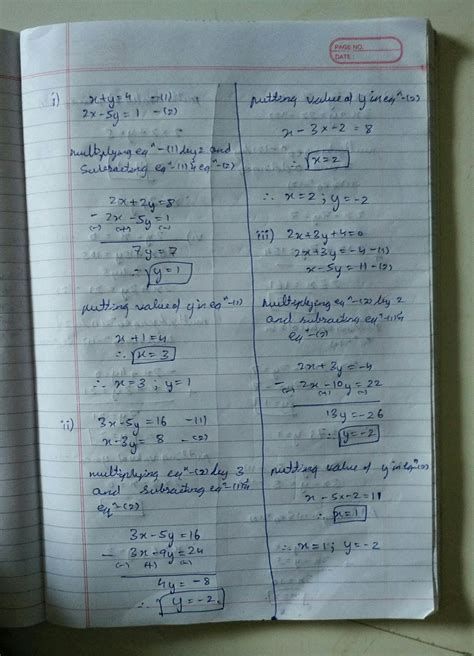 PAGE NO.
DATE:
i) x+y=4 -(1)
2x-5y=1 -(2)
multiplying eqⁿ-(1) by 2 and
subtracting eqⁿ-(1) & eqⁿ-(2)
2x+2y=8
- 2x-5y=1
(-) (+) (-)
7y=7
∴ y=1
putting value of y in eqⁿ-(1)
x+1=4
∴ x=3
∴ x=3 ; y=1
ii) 3x-5y=16 -(1)
x-3y= 8 -(2)
multiplying eqⁿ-(2) by 3
and subtracting eqⁿ-(1) &
eqⁿ-(2)
3x-5y=16
- 3x-9y=24
(-) (+) (-)
4y= -8
∴ y=-2
putting value of y in eqⁿ-(2)
x-3x-2=8
∴ x=2
∴ x=2 ; y=-2
iii) 2x+3y+4=0
2x+3y=-4 -(1)
x-5y=11 -(2)
multiplying eqⁿ-(2) by 2
and subtracting eqⁿ-(1) &
eqⁿ-(2)
2x+3y=-4
- 2x-10y=22
(-) (+) (-)
13y=-26
∴ y=-2
putting value of y in eqⁿ(2)
x-5x-2=11
∴ x=1
∴ x=1 ; y=-2